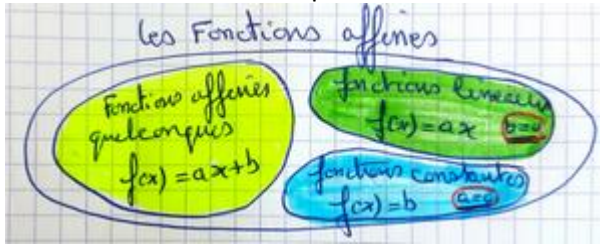 les Fonctions affines
Fonctions affines
quelconques
f(x) = ax+b
fonctions linéaires
f(x) = ax b=0
fonctions constantes
f(x) = b a=0